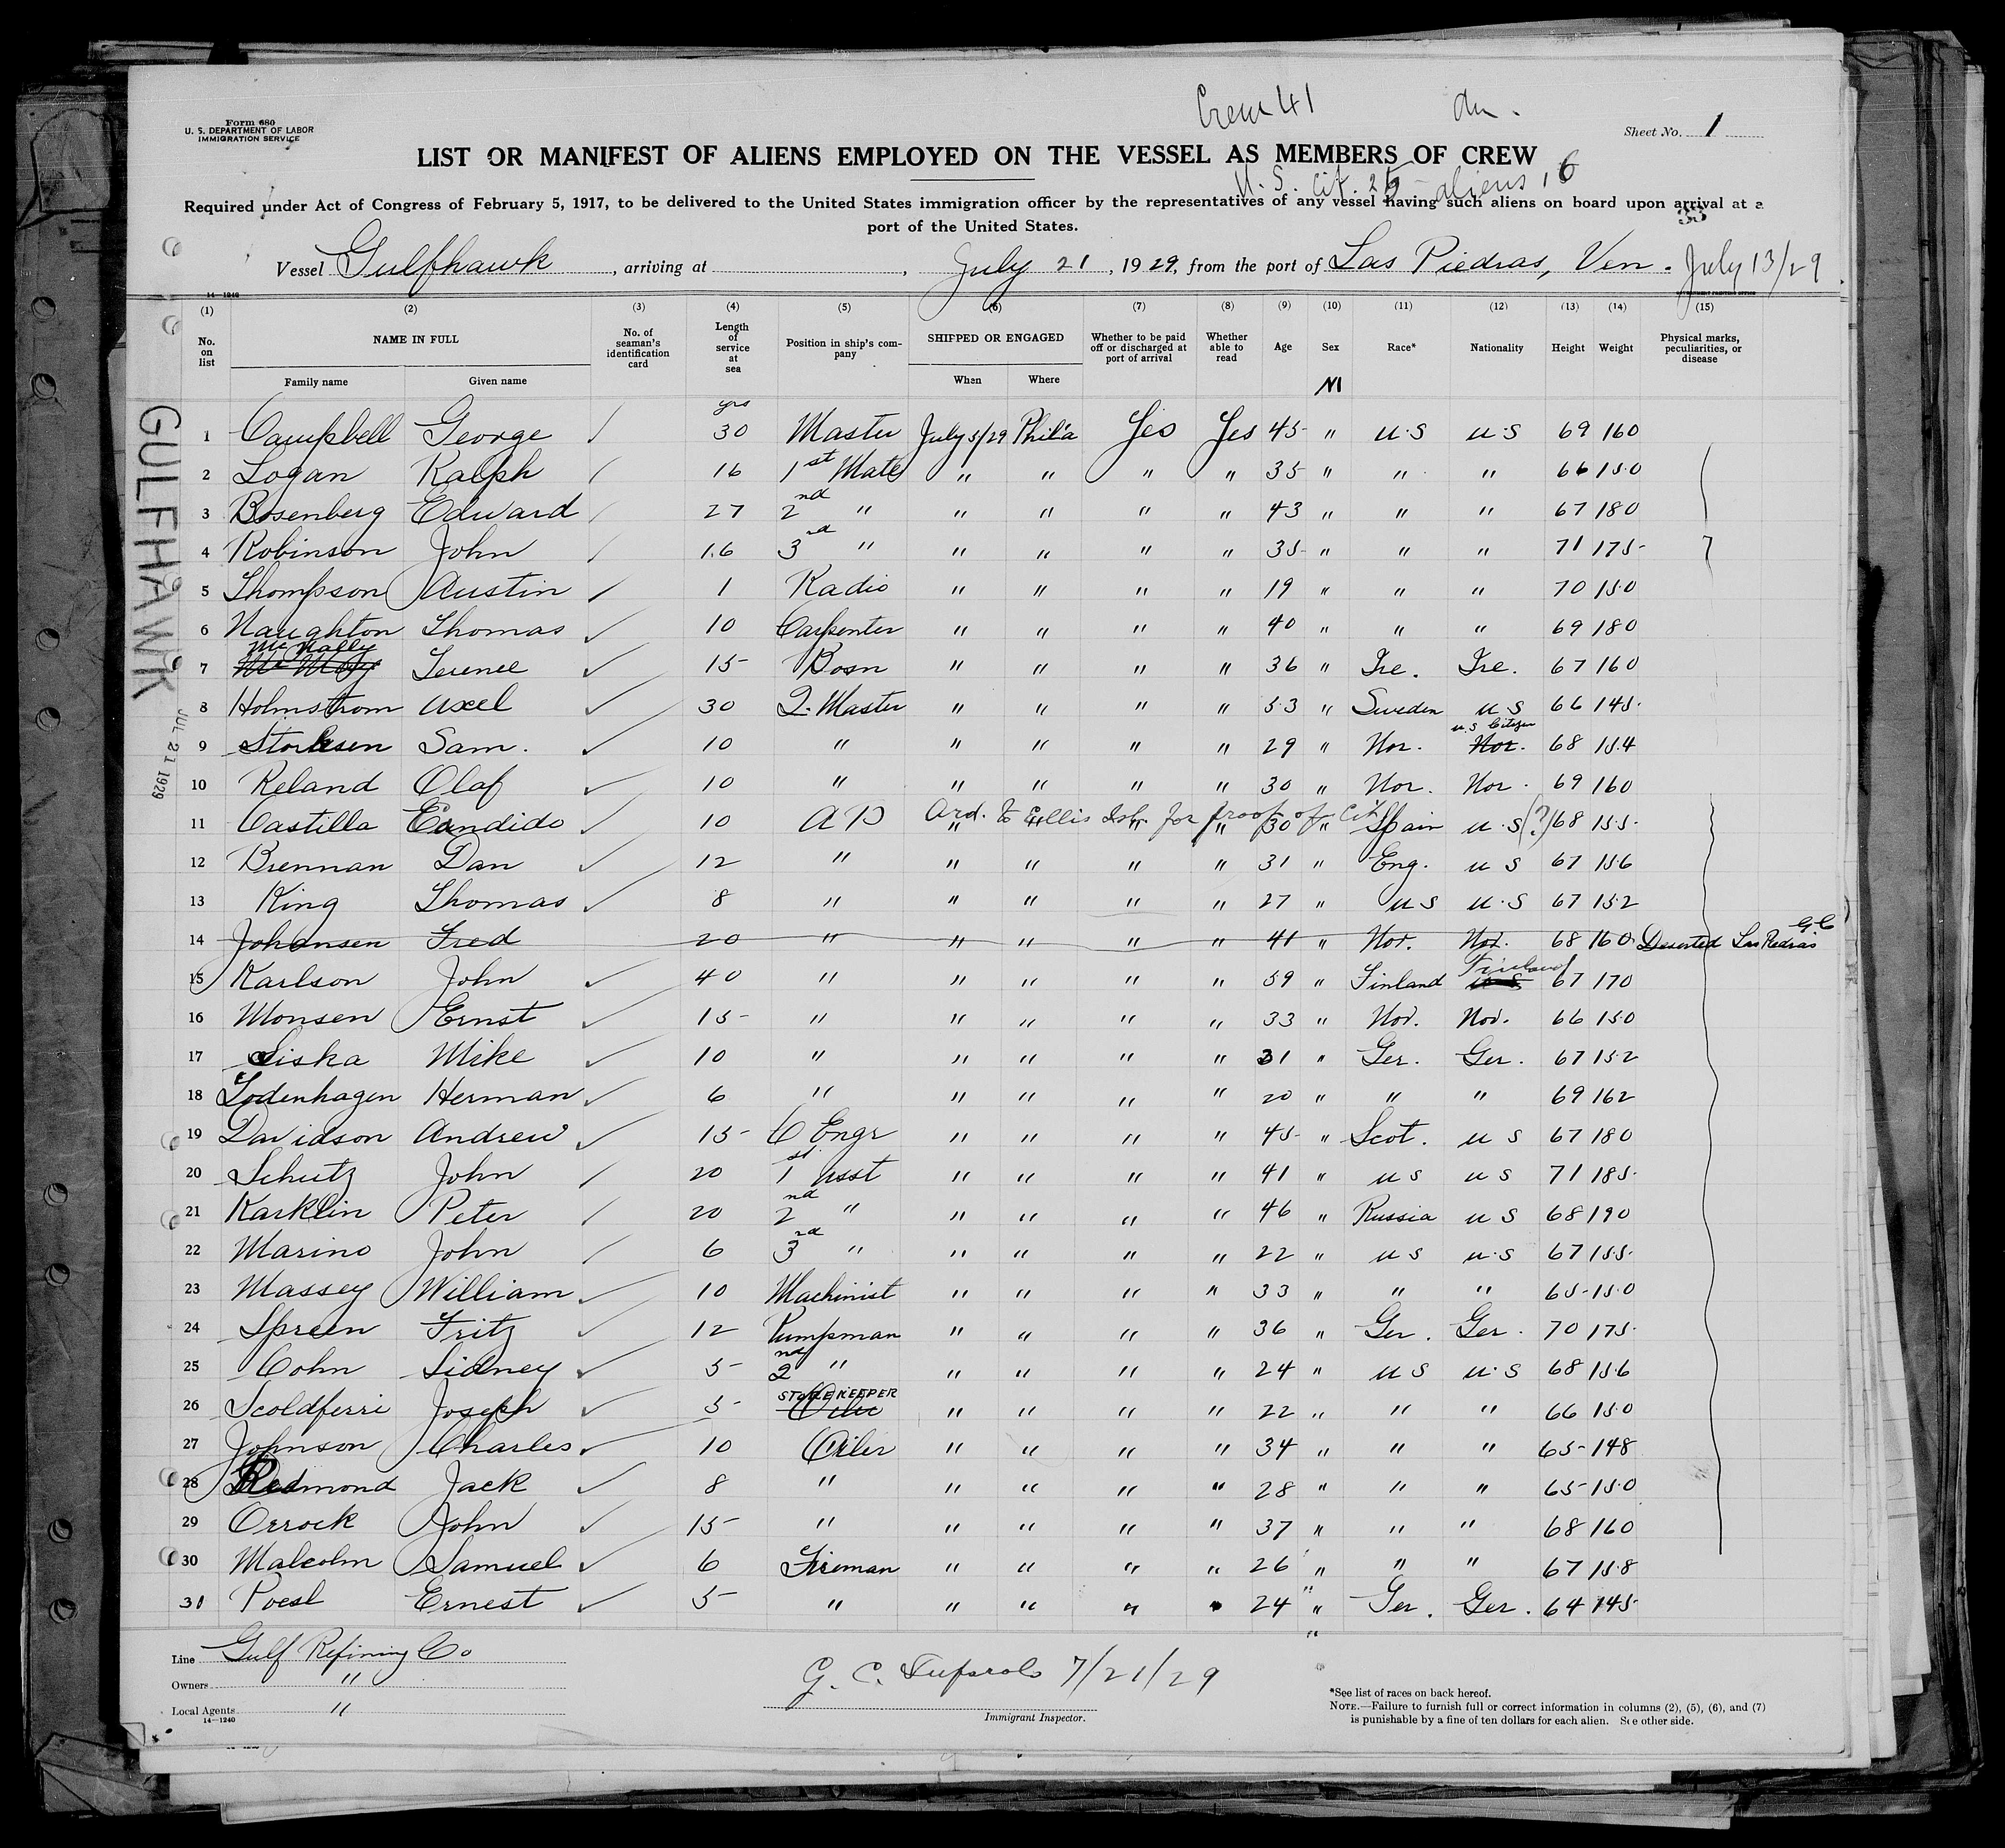 Crew 41
Form 680
U. S. DEPARTMENT OF LABOR
IMMIGRATION SERVICE
Sheet No. 1
LIST OR MANIFEST OF ALIENS EMPLOYED ON THE VESSEL AS MEMBERS OF CREW
U. S. Cit. 25 - aliens 16
Required under Act of Congress of February 5, 1917, to be delivered to the United States immigration officer by the representatives of any vessel having such aliens on board upon arrival at a
port of the United States.
33
Vessel Gulfhawk, arriving at , July 21, 1929, from the port of Las Piedras, Ven. July 13/29
14—1240
GOVERNMENT PRINTING OFFICE
(1) (2) (3) (4) (5) (6) (7) (8) (9) (10) (11) (12) (13) (14) (15)
No. on list NAME IN FULL Family name Given name No. of seaman's identification card Length of service at sea Position in ship's company SHIPPED OR ENGAGED When Where Whether to be paid off or discharged at port of arrival Whether able to read Age Sex Race* Nationality Height Weight Physical marks, peculiarities, or disease
M
yrs
1 Campbell George 30 Master July 5/29 Phila Yes Yes 45 " U.S U.S 69 160
2 Logan Ralph 16 1st Mate " " " " 35 " " " 66 150
3 Bosenberg Edward 27 2nd " " " " " 43 " " " 67 180
4 Robinson John 16 3rd " " " " " 35 " " " 71 175
5 Thompson Austin 1 Radio " " " " 19 " " " 70 150
6 Naughton Thomas 10 Carpenter " " " " 40 " " " 69 180
Mc Nally
7 Terence 15 Bosn " " " " 36 " Ire. Ire. 67 160
8 Holmstrom Axel 30 Q. Master " " " " 53 " Sweden U S 66 145
U.S Citizen
9 Storksen Sam. 10 " " " " " 29 " Nor. Nor. 68 154
10 Reland Olaf 10 " " " " " 30 " Nor. Nor. 69 160
Ord. to Ellis Isl. for proof of Cit
11 Castilla Candido 10 AB " " " " 30 " Spain U.S (?) 68 155
12 Brennan Dan 12 " " " " " 31 " Eng. U S 67 156
13 King Thomas 8 " " " " " 27 " U S U.S 67 152
14 Johansen Fred 20 " " " " " 41 " Nor. Nor. 68 160 Deserted Las Piedras G.C
Finland
15 Karlson John 40 " " " " " 59 " Finland U S 67 170
16 Monsen Ernst 15 " " " " " 33 " Nor. Nor. 66 150
17 Siska Mike 10 " " " " " 31 " Ger. Ger. 67 152
18 Lodenhagen Herman 6 " " " " " 20 " " " 69 162
19 Davidson Andrew 15 C Engr " " " " 45 " Scot. U S 67 180
20 Schutz John 20 1st Asst " " " " 41 " U S U S 71 185
21 Karklin Peter 20 2nd " " " " " 46 " Russia U S 68 190
22 Marino John 6 3rd " " " " " 22 " U S U.S 67 155
23 Massey William 10 Machinist " " " " 33 " " " 65 150
24 Spreen Fritz 12 Pumpman " " " " 36 " Ger. Ger. 70 175
25 Cohn Sidney 5 2nd " " " " " 24 " U S U.S 68 156
STOREKEEPER
26 Scoldferri Joseph 5 Oiler " " " " 22 " " " 66 150
27 Johnson Charles 10 Oiler " " " " 34 " " " 65 148
28 Redmond Jack 8 " " " " " 28 " " " 65 150
29 Orrock John 15 " " " " " 37 " " " 68 160
30 Malcolm Samuel 6 Fireman " " " " 26 " " " 67 158
31 Poesl Ernest 5 " " " " " 24 " Ger. Ger. 64 145
GULFHAWK
JUL 21 1929
Line Gulf Refining Co
Owners "
Local Agents "
14—1240
G. C. 7/21/29
Immigrant Inspector.
*See list of races on back hereof.
NOTE.—Failure to furnish full or correct information in columns (2), (5), (6), and (7)
is punishable by a fine of ten dollars for each alien. See other side.